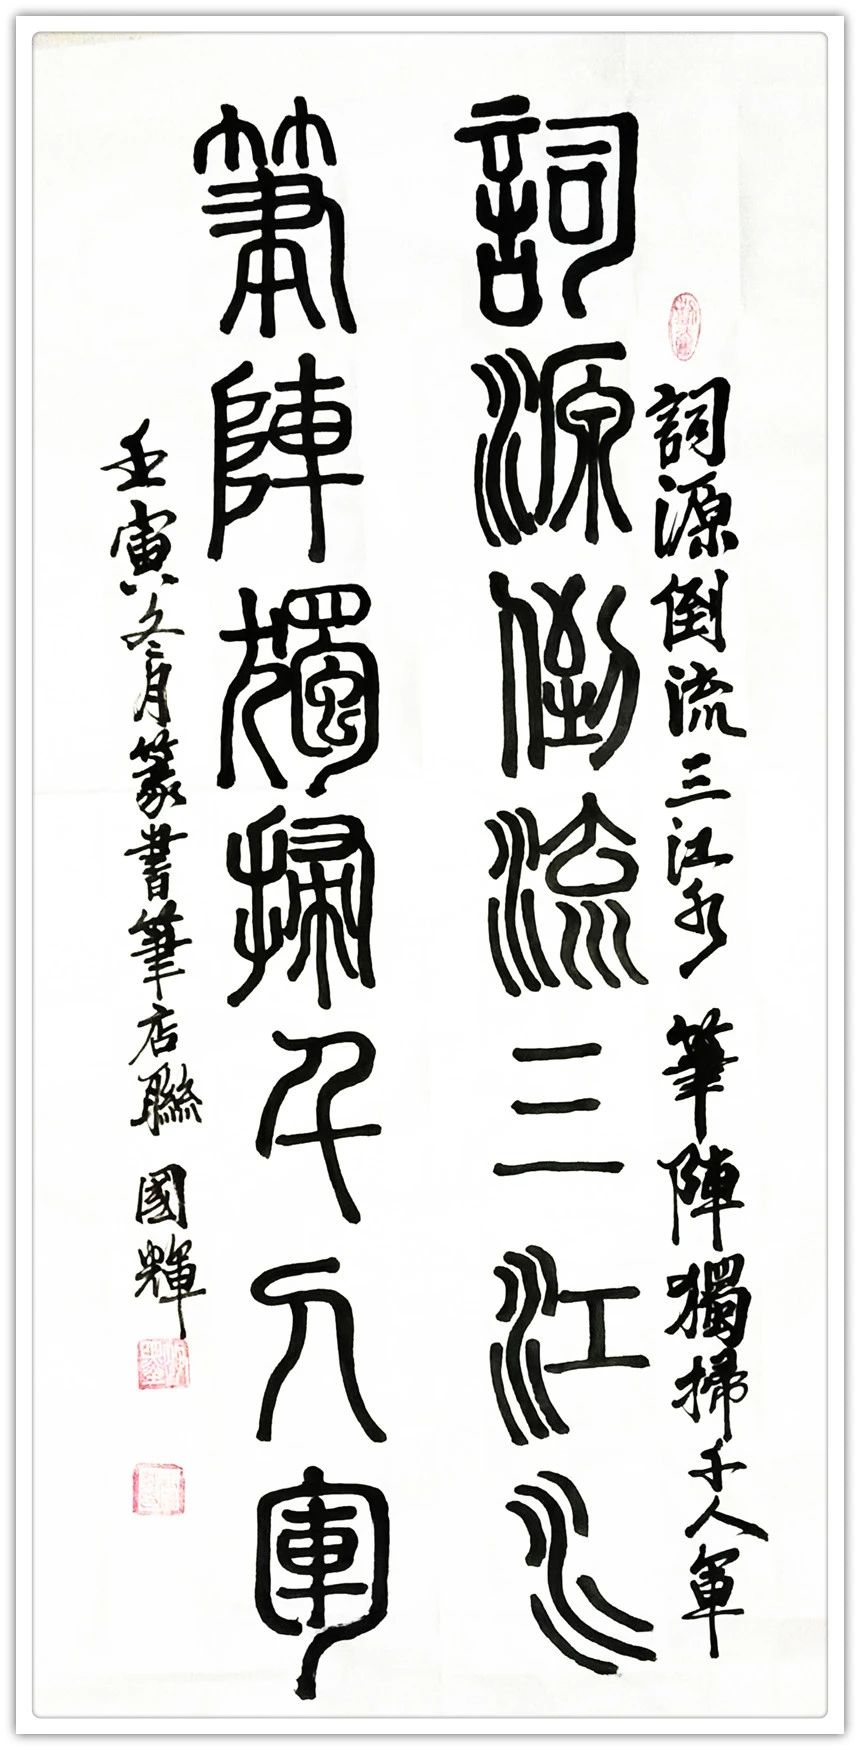 詞源倒流三江水筆陣獨掃千人軍
詞源倒流三江水
筆陣獨掃千人軍
壬寅冬月篆書筆店聯國輝